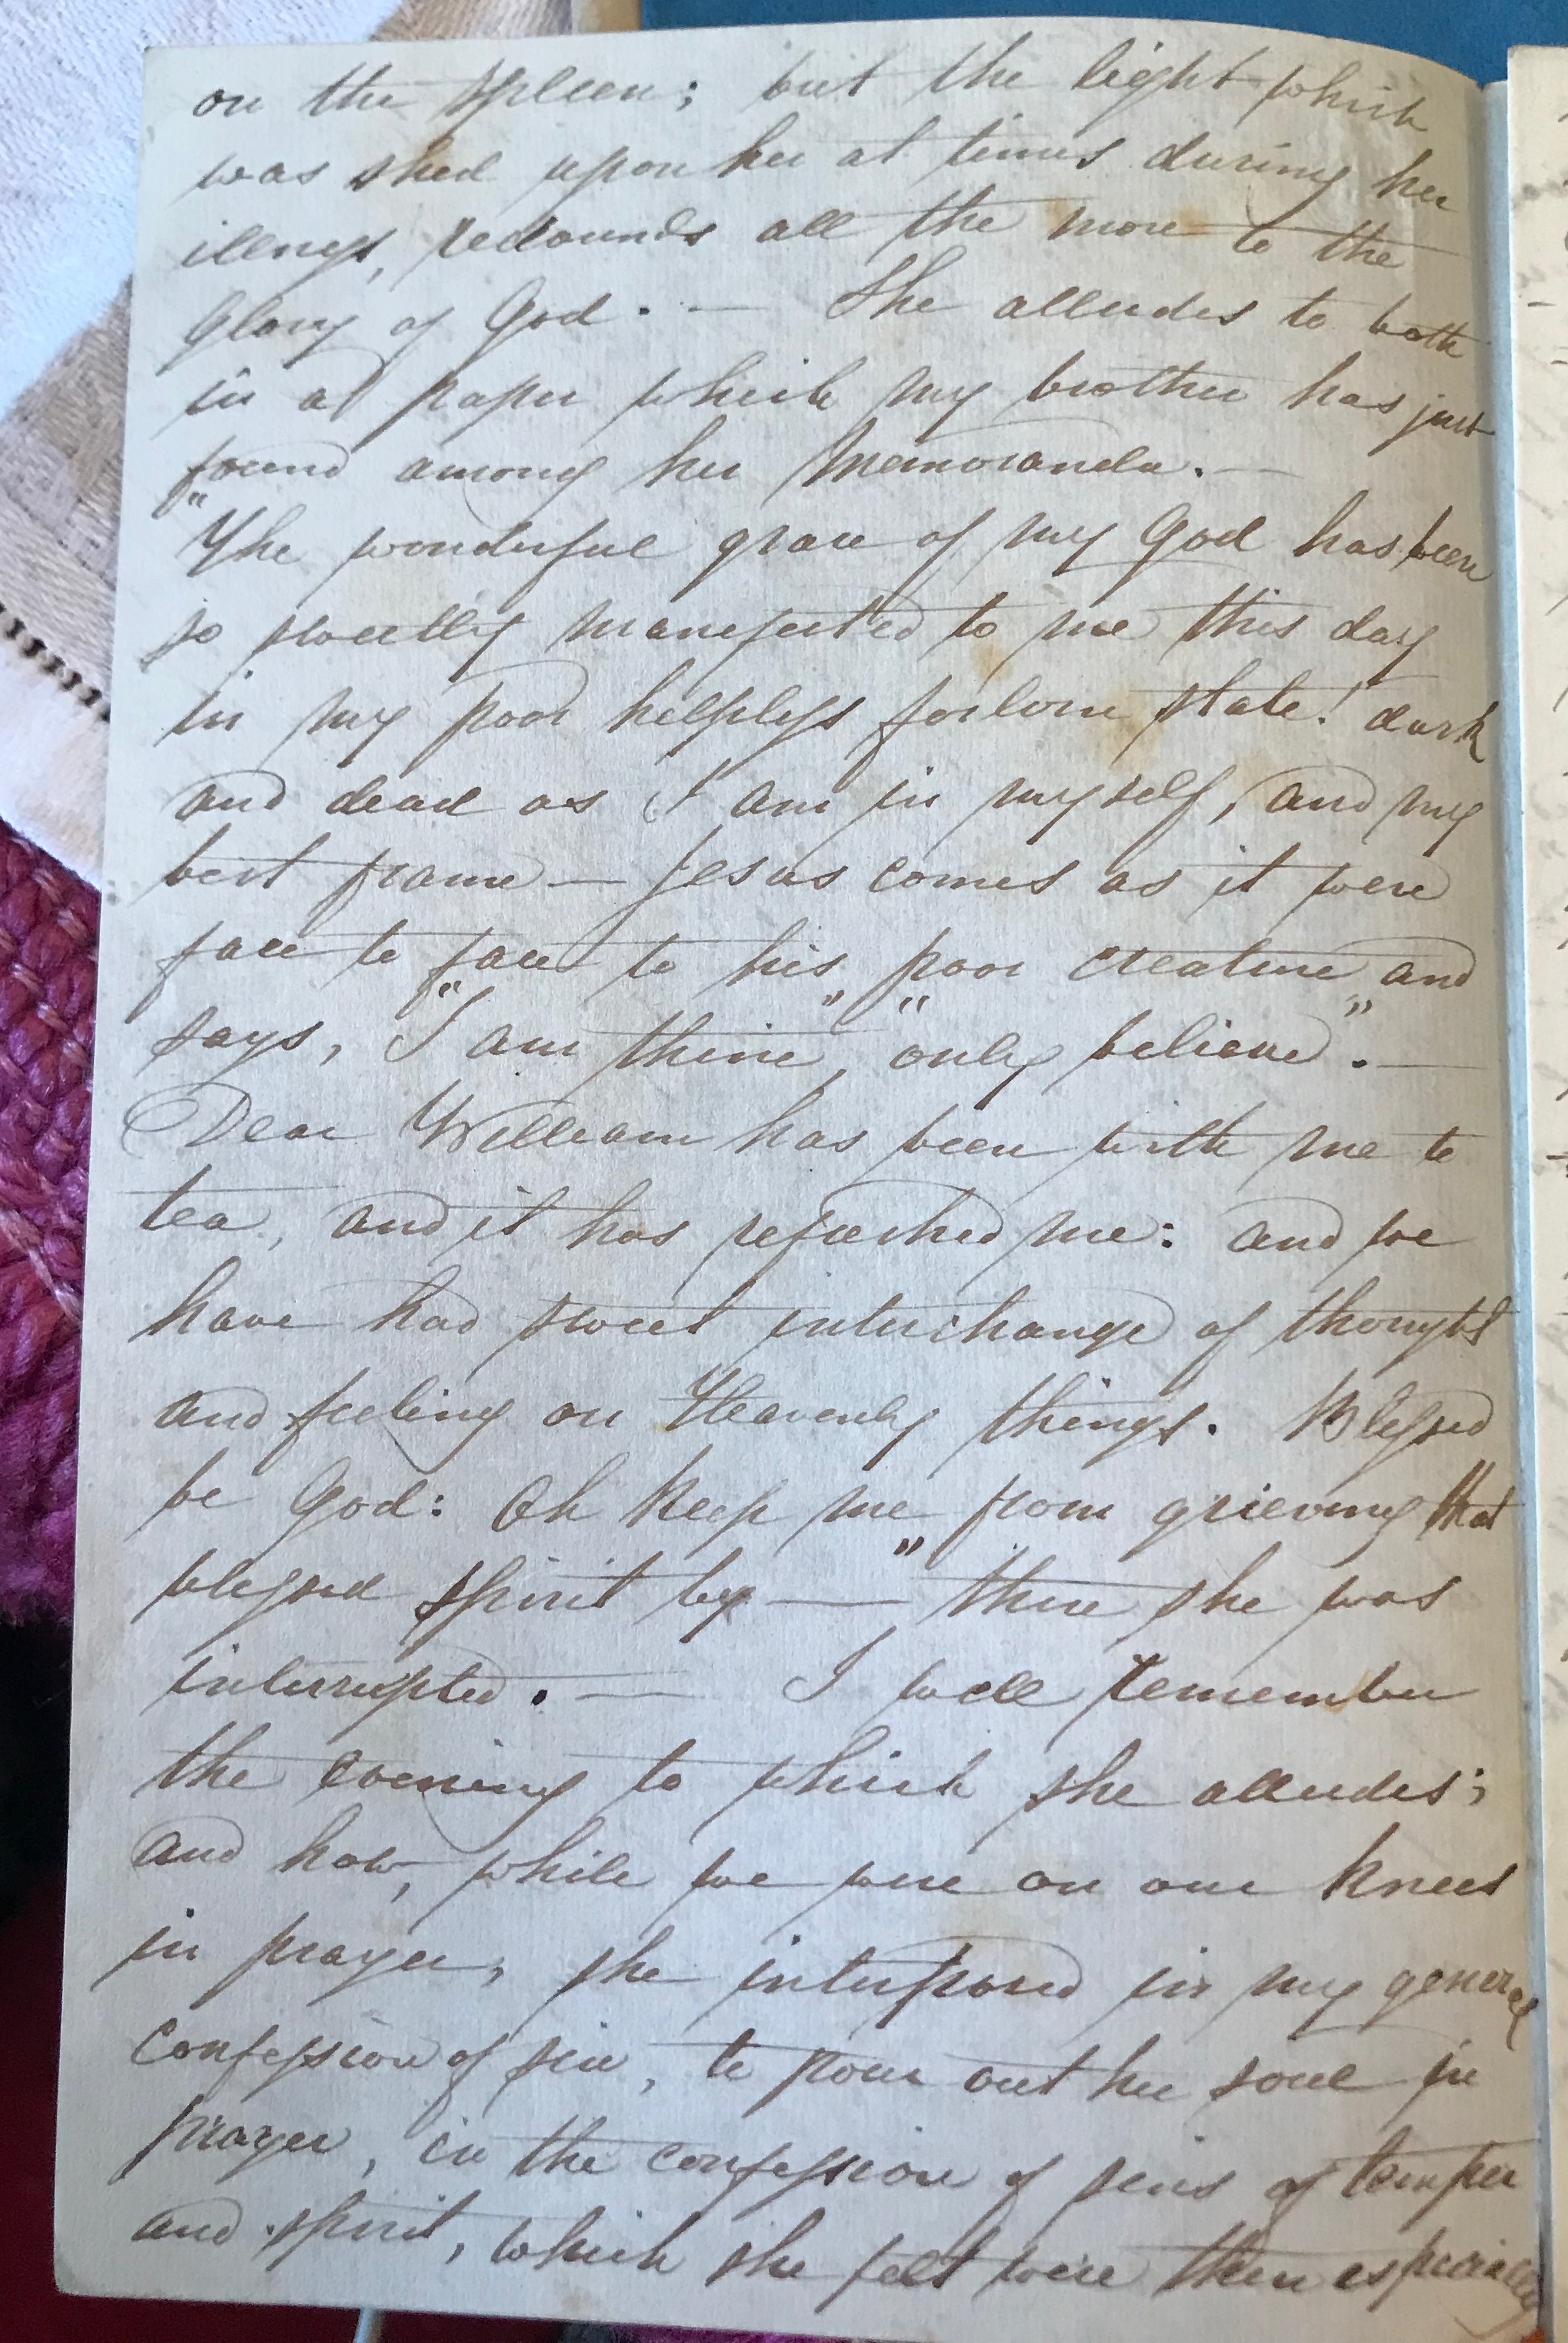 on the spleen; but the light which
was shed upon her at times during her
illness, redounds all the more to the
Glory of God. — She alludes to both
in a paper which my brother has just
found among her Memoranda. —
"The wonderful grace of my God has been
so sweetly manefested to me this day
in my poor helpless forlorn state! dark
and dead as I am in myself, and my
best frame — Jesus comes as it were
face to face to his poor creature and
says, "I am thine", "only believe". —
Dear William has been with me to
tea, and it has refreshed me: and we
have had sweet interchange of thought
and feeling on Heavenly things. Blessed
be God: Oh keep me from grieving that
blessed spirit by —" there she was
interrupted. — I well remember
the evening to which she alludes;
and how, while we were on our knees
in prayer, she interposed in my general
confession of sin, to pour out her soul in
prayer, in the confession of sins of temper
and spirit, which she felt were then especially